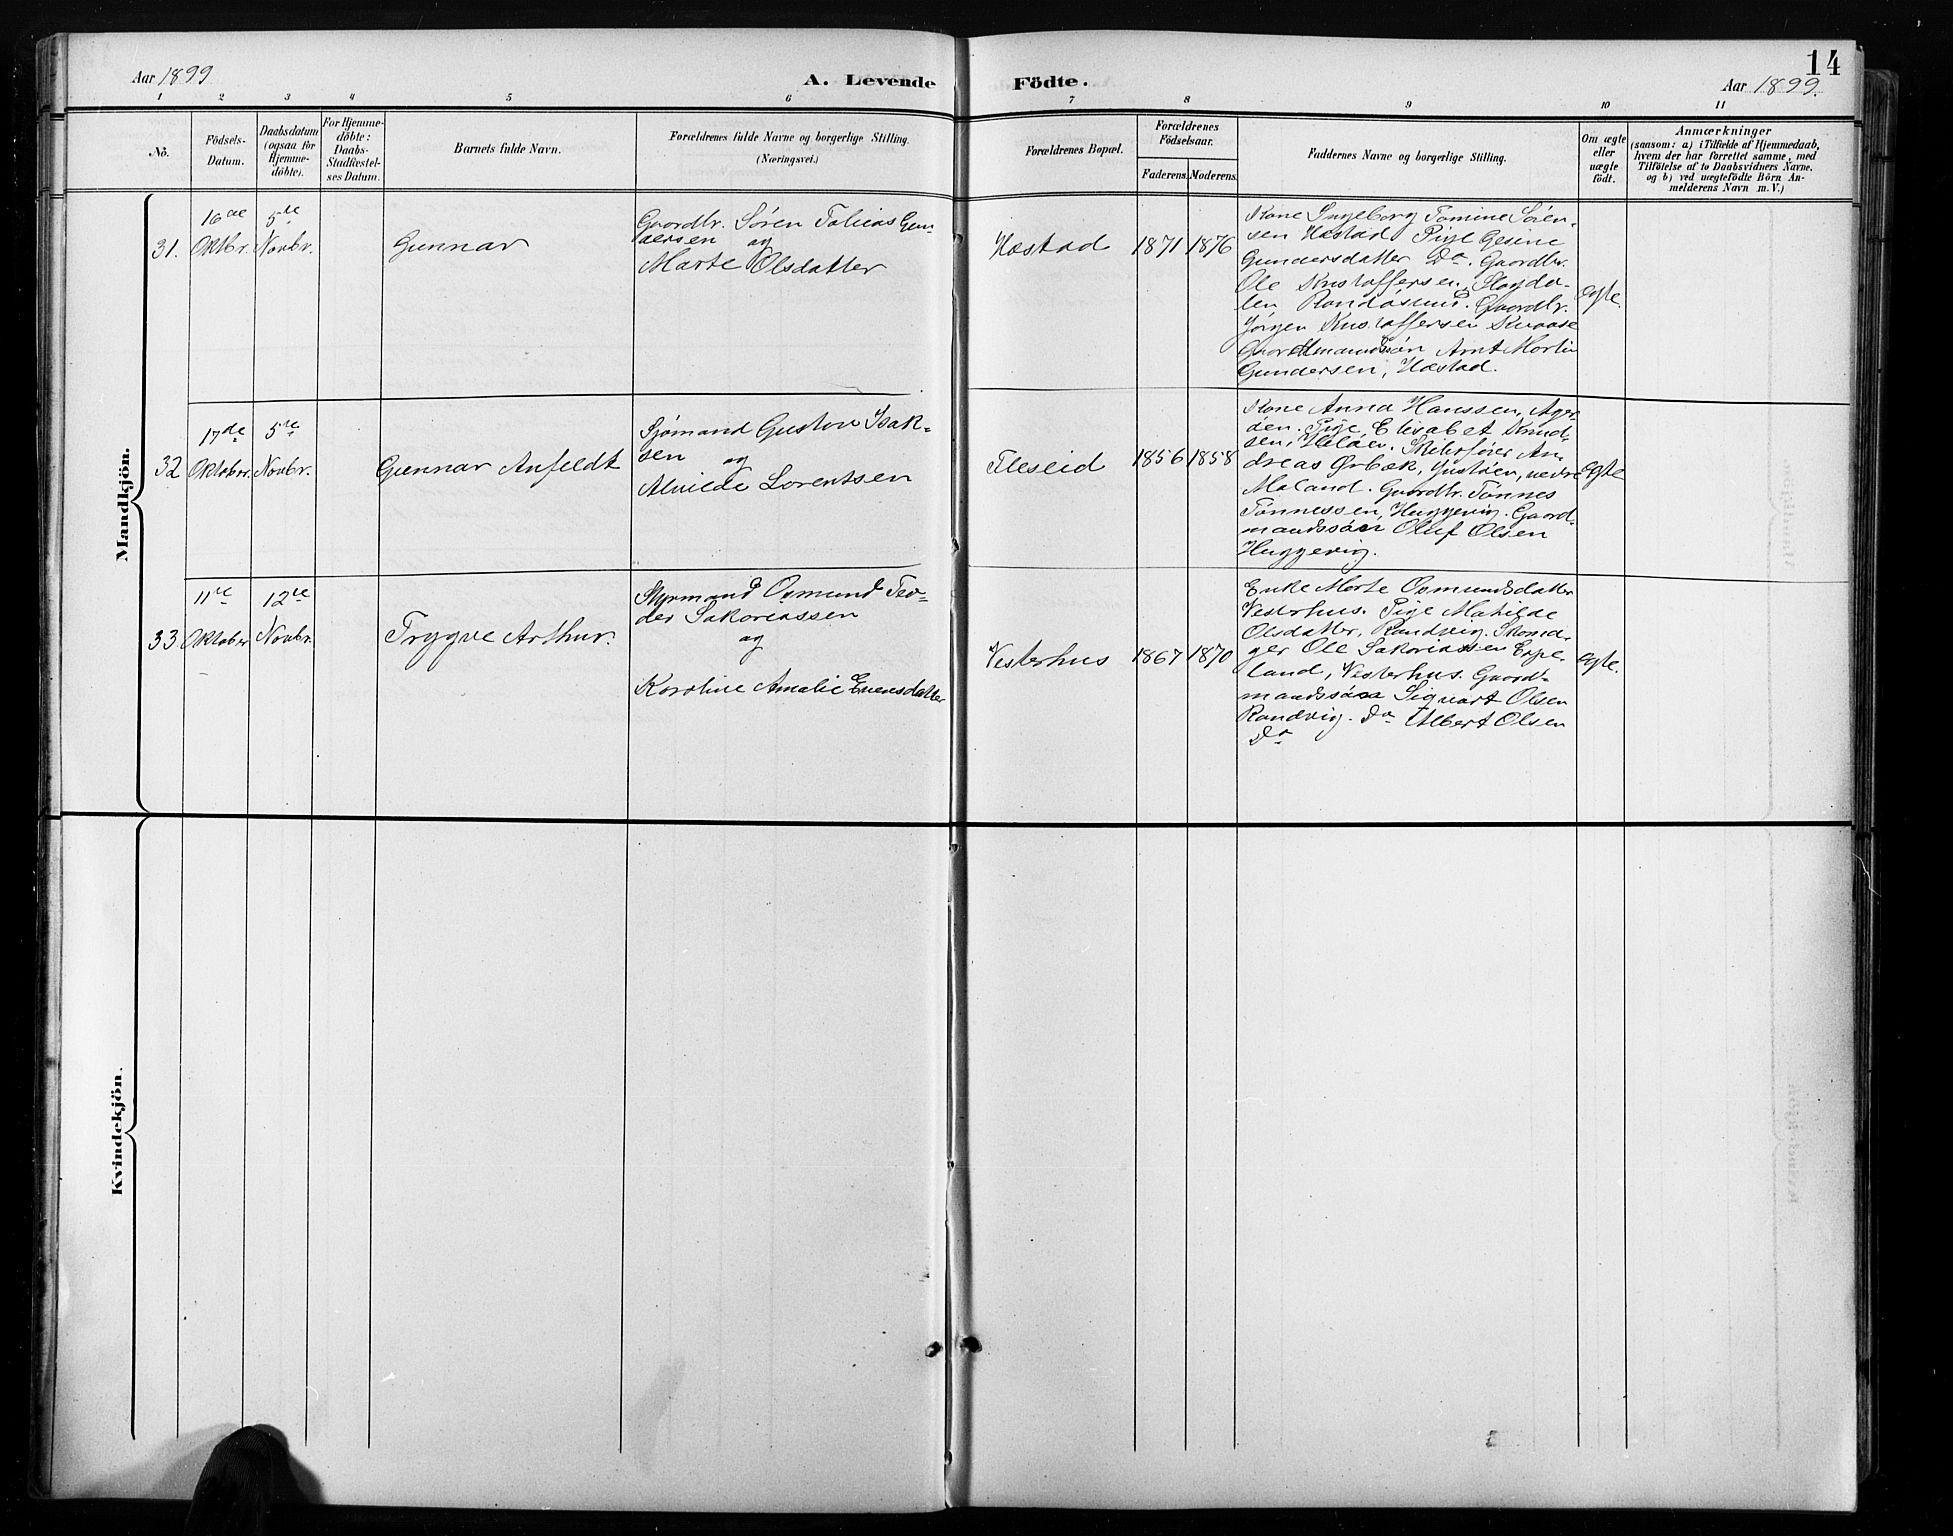 14
Aar 1899
A. Levende
Födte.
Aar 1899.
1 2 3 4 5 6 7 8 9 10 11
No.
Födsels-
Datum.
Daabsdatum
(ogsaa for
Hjemme-
döbte).
For Hjemme-
döbte:
Daabs-
Stadfæstel-
ses Datum.
Barnets fulde Navn.
Forældrenes fulde Navne og borgerlige Stilling.
(Næringsvei.)
Forældrenes Bopæl.
Forældrenes
Födselsaar.
Faderens.
Moderens.
Faddernes Navne og borgerlige Stilling.
Om ægte
eller
uægte
födt.
Anmærkninger
(saasom: a) i Tilfælde af Hjemmedaab,
hvem der har forrettet samme, med
Tilföielse af to Daabsvidners Navne.
og b) ved uægtefödte Börn An-
melderens Navn m. V.)
Mandkjön.
31.
16de
Oktbr.
5te
Novbr.
Gunnar
Gaardbr. Sören Tobias Gun-
dersen og
Marte Olsdatter
Hæstad
1871
1876
Kone Ingeborg Tomine Sören-
sen Hæstad Pige Gesine
Gundersdatter Do. Gaardbr.
Ole Kristoffersen,
Randösund. Gaardbr.
Jörgen Kristoffersen Kvaase
Gaardmandssön Arnt Martin
Gundersen, Hæstad.
ægte.
32
17de
Oktober
5te
Novbr.
Gunnar Anfeldt
Sjömand Gustav Isak-
sen og
Alvilde Lorentsen
Fleseid
1856
1858
Kone Anna Hanssen, Ager
öen. Pige Elisabet Knud-
sen, Helöen. Skibsförer An-
dreas Örbæk, Justöen, nedre
Maland. Gaardbr. Tönnes
Tönnessen, Huggevig. Gaard-
mandssön Oluf Olsen
Huggevig.
ægte
33
11te
Oktober
12te
Novbr.
Trygve Arthur.
Styrmand Osmund Teo-
dor Sakariassen
og
Karoline Amalie Evensdatter
Vesterhus
1867
1870
Enke Marte Osmundsdatter
Vesterhus. Pige Matilde
Olsdatter, Randvig. Skomá-
ger Ole Sakariassen Eope-
land, Vesterhus. Gaard-
mandssön Sigvart Olsen
Randvig. Do Albert Olsen
Do
ægte.
Kvindekjön.